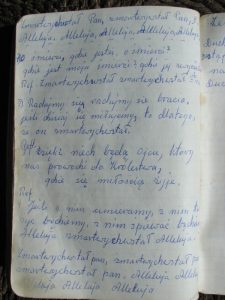 Zmartwychwstał Pan, zmartwychwstał Pan,
Alleluja, Alleluja, Alleluja, Alleluja, Alleluja
O śmierci, gdzie jesteś o śmierci?
gdzie jest moja śmierć? gdzie jej
Ref. Zmartwychwstał zmartwychwstał
2) Radujmy się radujmy się bracia,
jeśli dzisiaj się miłujemy to dlatego,
że on zmartwychwstał.
dzięki niech będą Ojcu, który
nas prowadzi do Królestwa,
gdzie się miłością żyje.
Ref.
Jeśli z nim umieramy, z nim
żyje będziemy, z nim śpiewać będziemy
Alleluja zmartwychwstał Alleluja.
Zmartwychwstał pan, zmartwychwstał pan
zmartwychwstał pan. Alleluja Alleluja
Alleluja Alleluja Alleluja